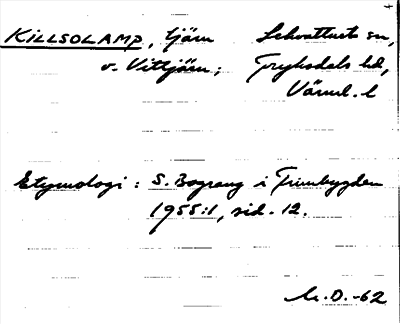 KILLSOLAMP, tjärn Lekvattnets sn,
v. Vittjärn; Fryksdals hd,
Värml. l
Etymologi: S. Bograng i Finnbygden
1955:1, sid. 12.
M.O.-62